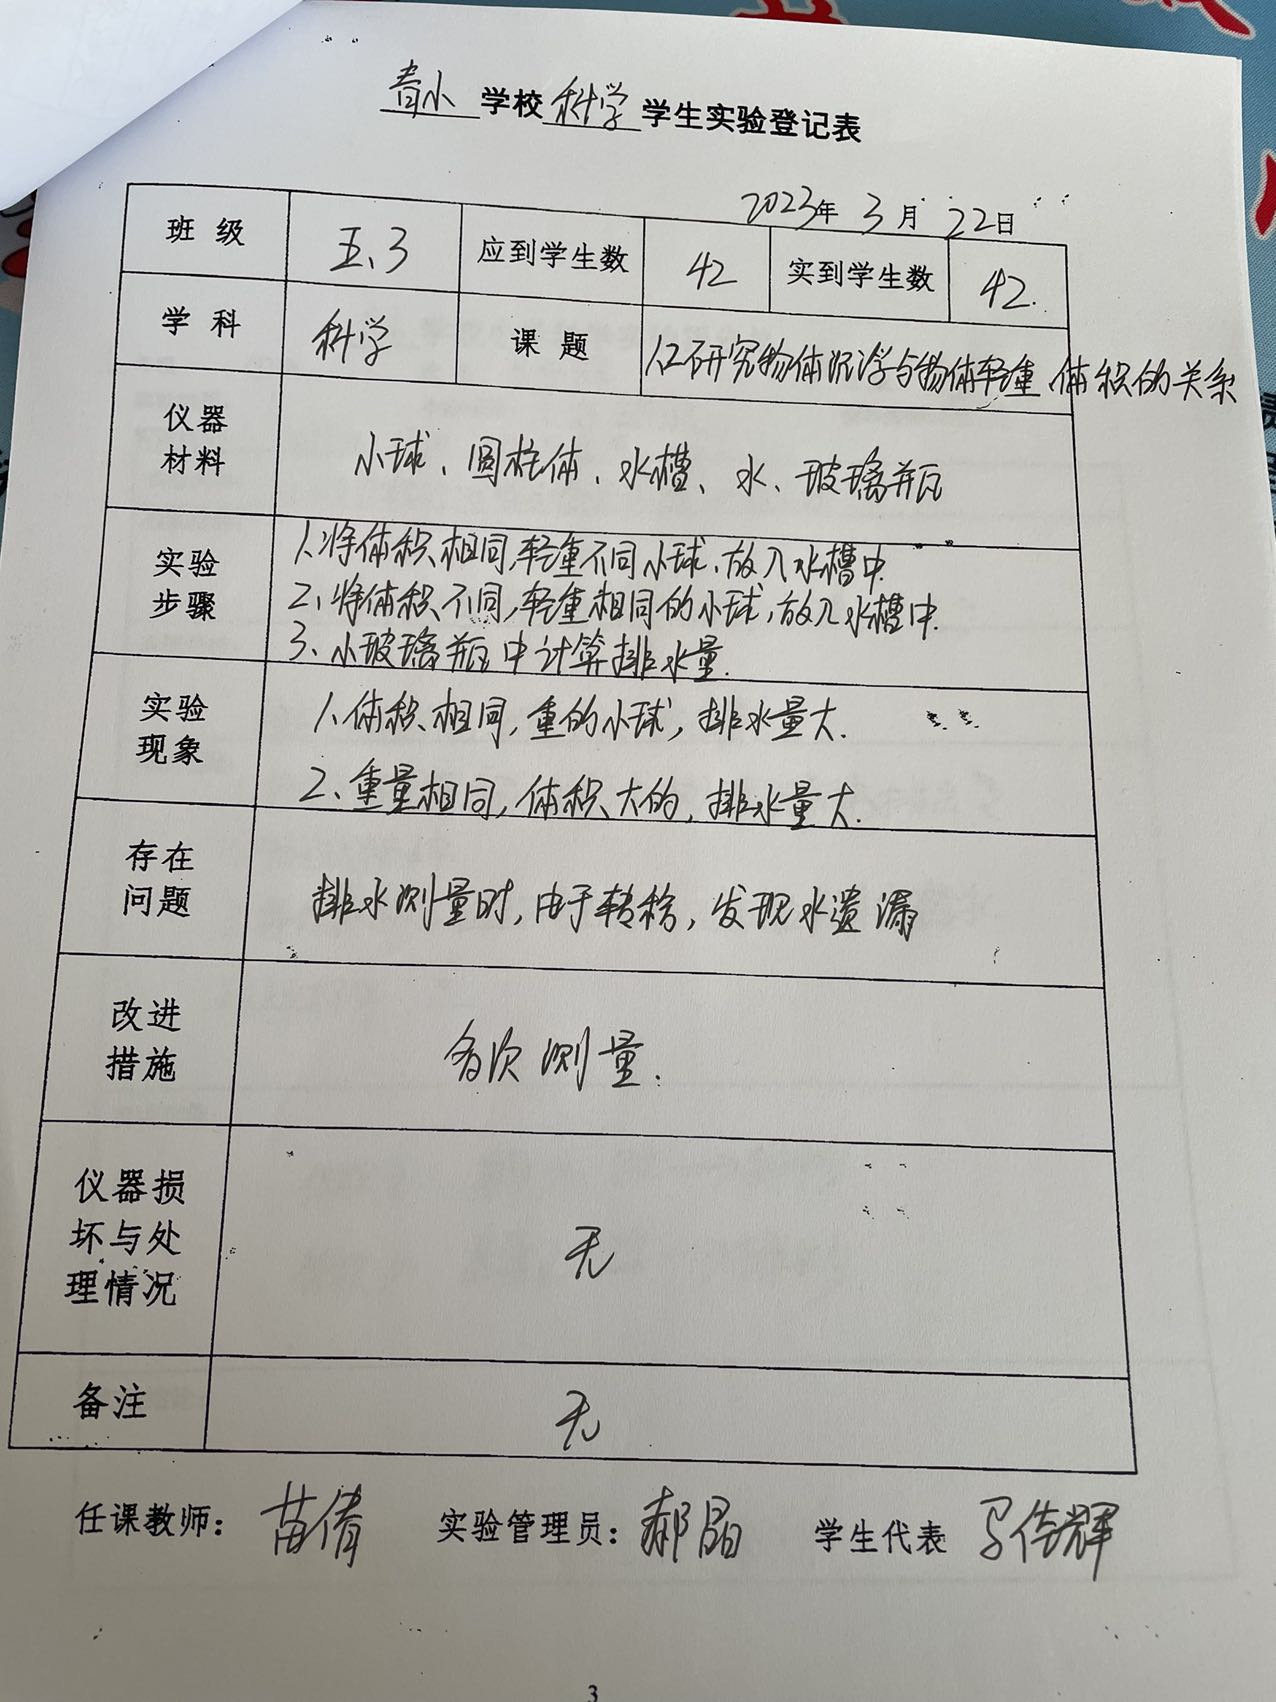 青小 学校 科学 学生实验登记表
2023年 3月 22日
班 级 五、3 应到学生数 42 实到学生数 42.
学 科 科学 课 题 研究物体沉浮与物体轻重、体积的关系
仪器
材料
小球、圆柱体、水槽、水、玻璃瓶
实验
步骤
1、将体积相同,轻重不同小球,放入水槽中.
2、将体积不同,轻重相同的小球,放入水槽中.
3、小玻璃瓶中计算排水量.
实验
现象
1、体积相同,重的小球,排水量大.
2、重量相同,体积大的,排水量大.
存在
问题
排水测量时,由于转移,发现水遗漏
改进
措施
多次测量.
仪器损
坏与处
理情况
无
备注 无
任课教师: 苗倩 实验管理员: 郝晶 学生代表
3